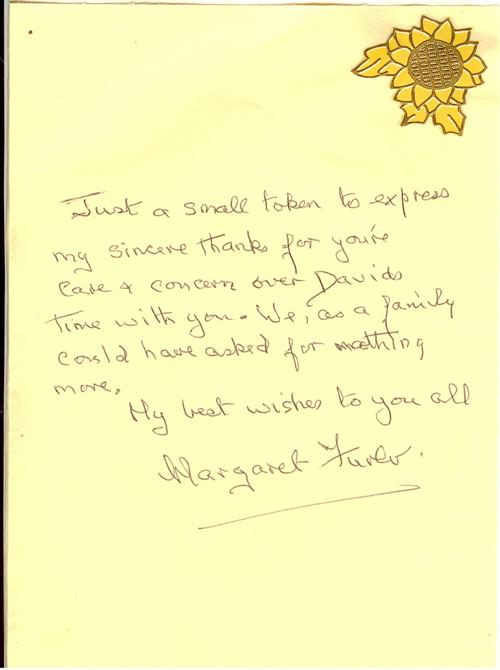 Just a small token to express
my sincere thanks for you're
care & concern over Davids
time with you. We, as a family
could have asked for nothing
more.
My best wishes to you all
Margaret